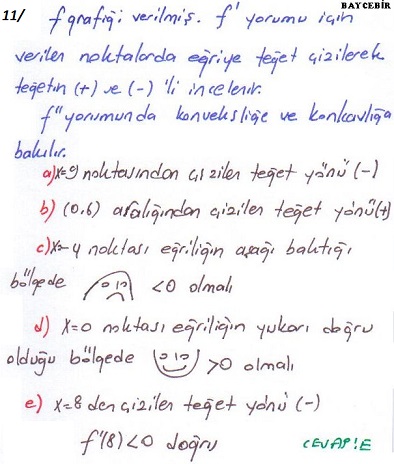 BAYCEBİR
11/ f grafiği verilmiş. f' yorumu için
verilen noktalarda eğriye teğet çizilerek
teğetin (+) ve (-) 'li incelenir.
f'' yorumunda konveksliğe ve konkavlığa
bakılır.
a) x=9 noktasından çizilen teğet yönü (-)
b) (0,6) aralığından çizilen teğet yönü (+)
c) x=-4 noktası eğriliğin aşağı baktığı
bölgede <0 olmalı
d) x=0 noktası eğriliğin yukarı doğru
olduğu bölgede >0 olmalı
e) x=8 den çizilen teğet yönü (-)
f'(8)<0 doğru
CEVAP:E